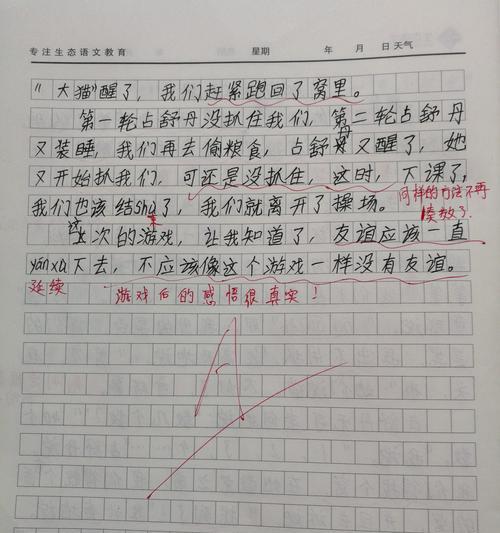 专注生态语文教育 星期 年 月 日 天气
“大猫”醒了，我们赶紧跑回了窝里。
第一轮占舒丹没扒住我们，第二轮占舒丹
又装睡，我们再去偷粮食，占舒丹又醒了，她
又开始扒我们，可还是没扒住，这时，下课了，
我们也该结shu了，我们就离开了操场。
束
同样的方法不再
奏效了。
这次的游戏，让我知道了，友谊应该一直
yánxù下去，不应该像这个游戏一样没有友谊。
延续 游戏后的感悟很真实！
A